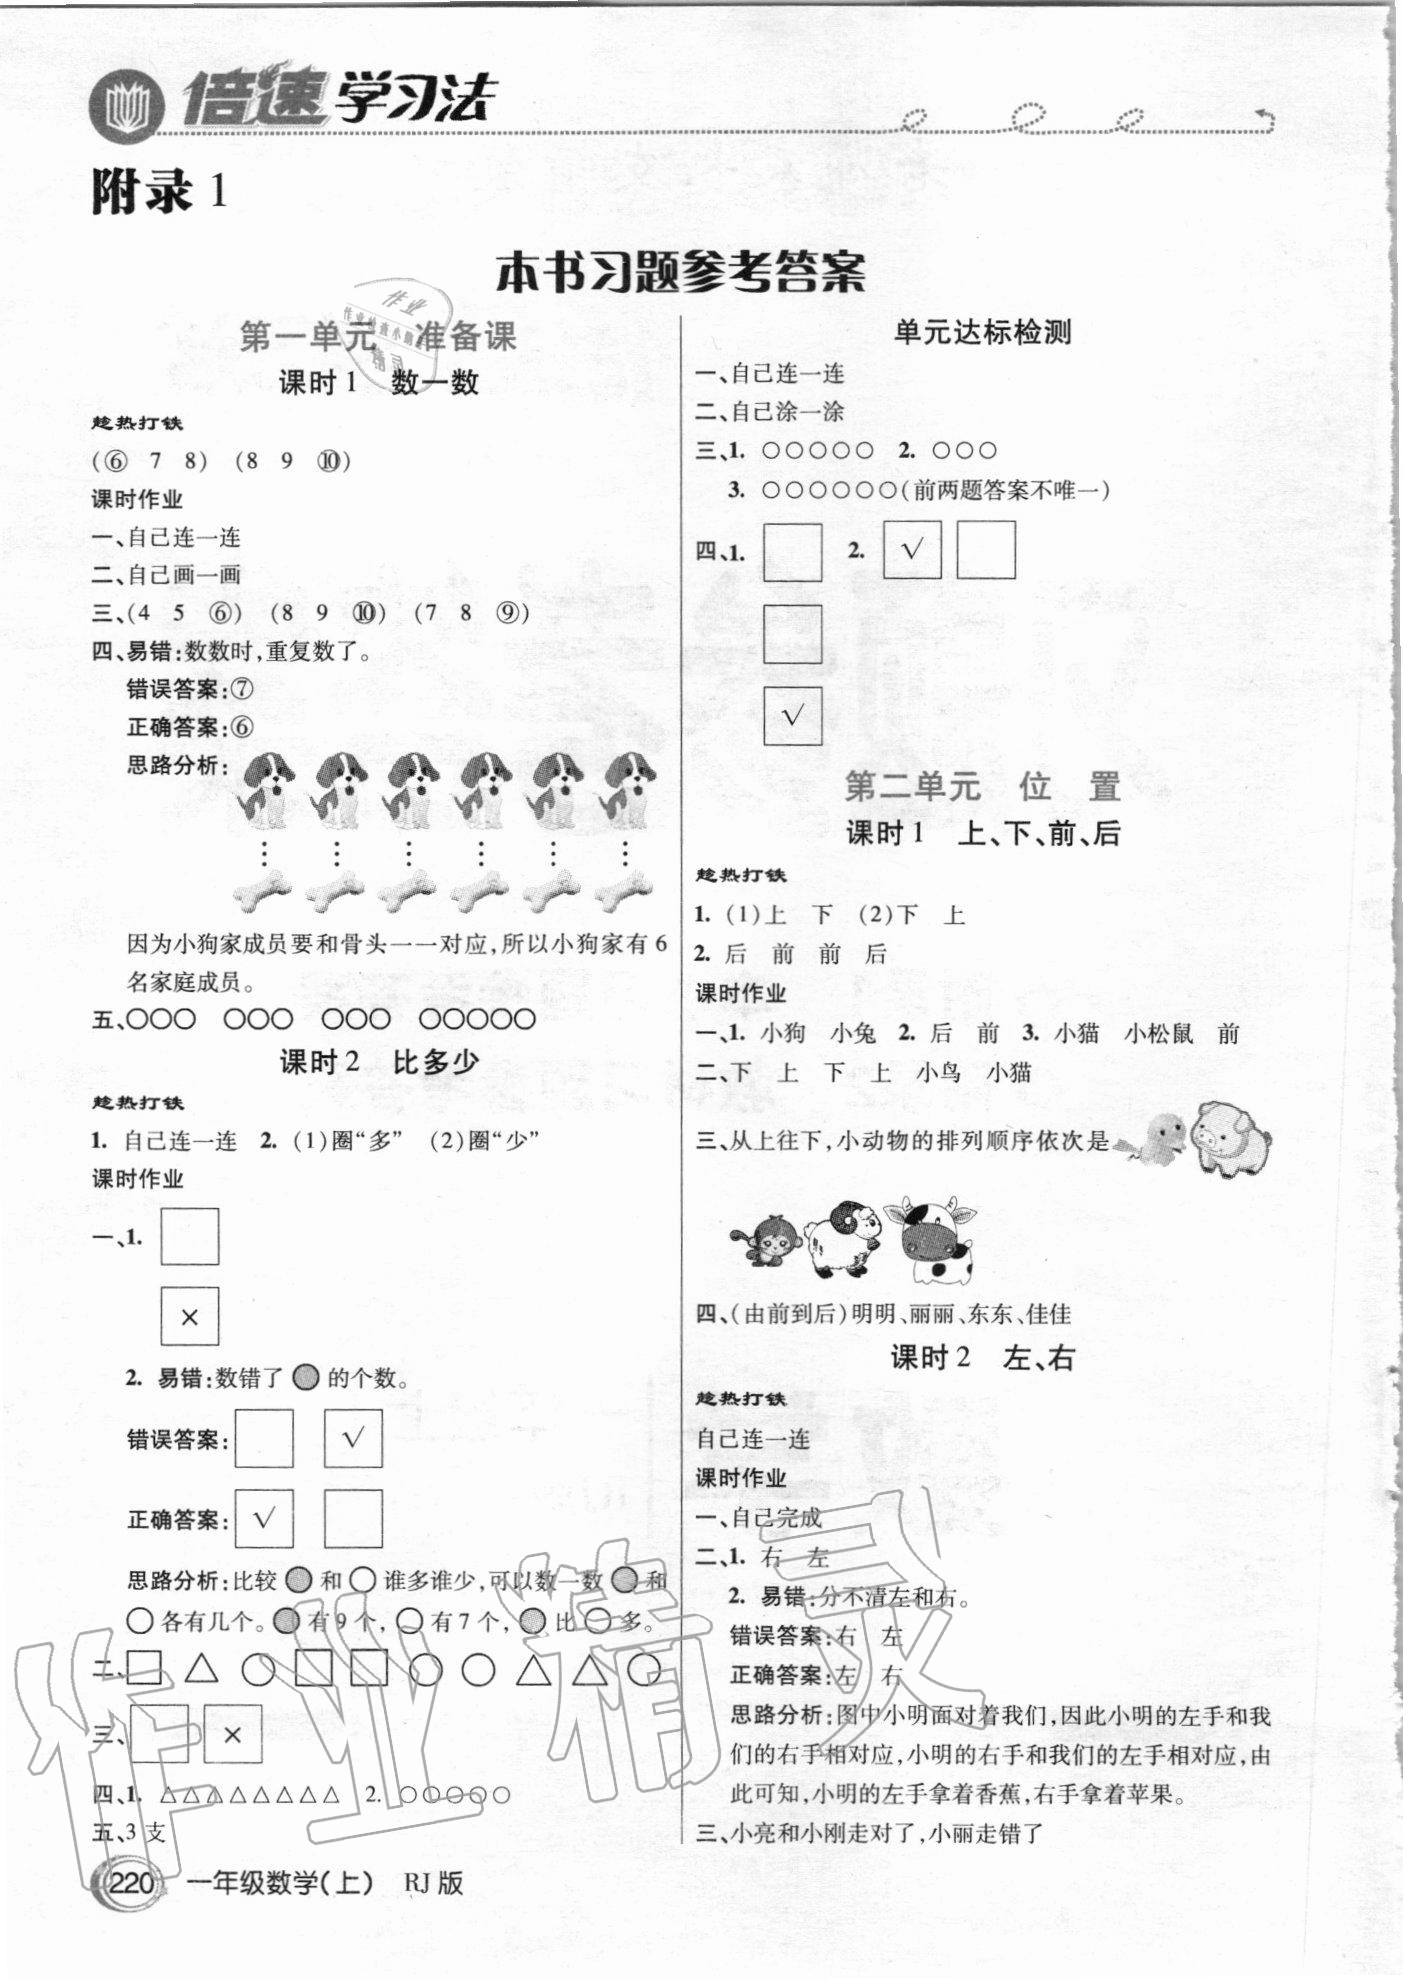 倍速学习法
附录 1
本书习题参考答案
第一单元 准备课
课时 1 数一数
趁热打铁
(⑥ 7 8) (8 9 ⑩)
课时作业
一、自己连一连
二、自己画一画
三、(4 5 ⑥) (8 9 ⑩) (7 8 ⑨)
四、易错:数数时,重复数了。
错误答案:⑦
正确答案:⑥
思路分析:
因为小狗家成员要和骨头一一对应,所以小狗家有 6
名家庭成员。
五、○○○ ○○○ ○○○ ○○○○○
课时 2 比多少
趁热打铁
1. 自己连一连 2. (1)圈“多” (2)圈“少”
课时作业
一、1. □
×
2. 易错:数错了 ● 的个数。
错误答案: □ √
正确答案: √ □
思路分析:比较 ● 和 ○ 谁多谁少,可以数一数 ● 和
○ 各有几个。● 有 9 个, ○ 有 7 个, ● 比 ○ 多。
二、□ △ ○ □ □ ○ ○ △ △ ○
三、□ ×
四、1. △△△△△△△△ 2. ○○○○○
五、3 支
220 一年级数学(上) RJ 版
单元达标检测
一、自己连一连
二、自己涂一涂
三、1. ○○○○○ 2. ○○○
3. ○○○○○○(前两题答案不唯一)
四、1. □ 2. √ □
□
√
第二单元 位 置
课时 1 上、下、前、后
趁热打铁
1. (1)上 下 (2)下 上
2. 后 前 前 后
课时作业
一、1. 小狗 小兔 2. 后 前 3. 小猫 小松鼠 前
二、下 上 下 上 小鸟 小猫
三、从上往下,小动物的排列顺序依次是
四、(由前到后)明明、丽丽、东东、佳佳
课时 2 左、右
趁热打铁
自己连一连
课时作业
一、自己完成
二、1. 右 左
2. 易错:分不清左和右。
错误答案:右 左
正确答案:左 右
思路分析:图中小明面对着我们,因此小明的左手和我
们的右手相对应,小明的右手和我们的左手相对应,由
此可知,小明的左手拿着香蕉,右手拿着苹果。
三、小亮和小刚走对了,小丽走错了
作业精灵